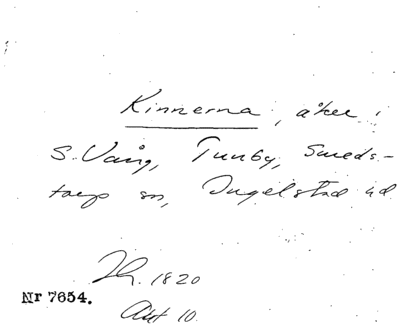 Kinnerna, åker i
S. Vång, Tunby, Smeds-
torp sn, Ingelstad hd
1820
Nr 7654.
Akt 10.